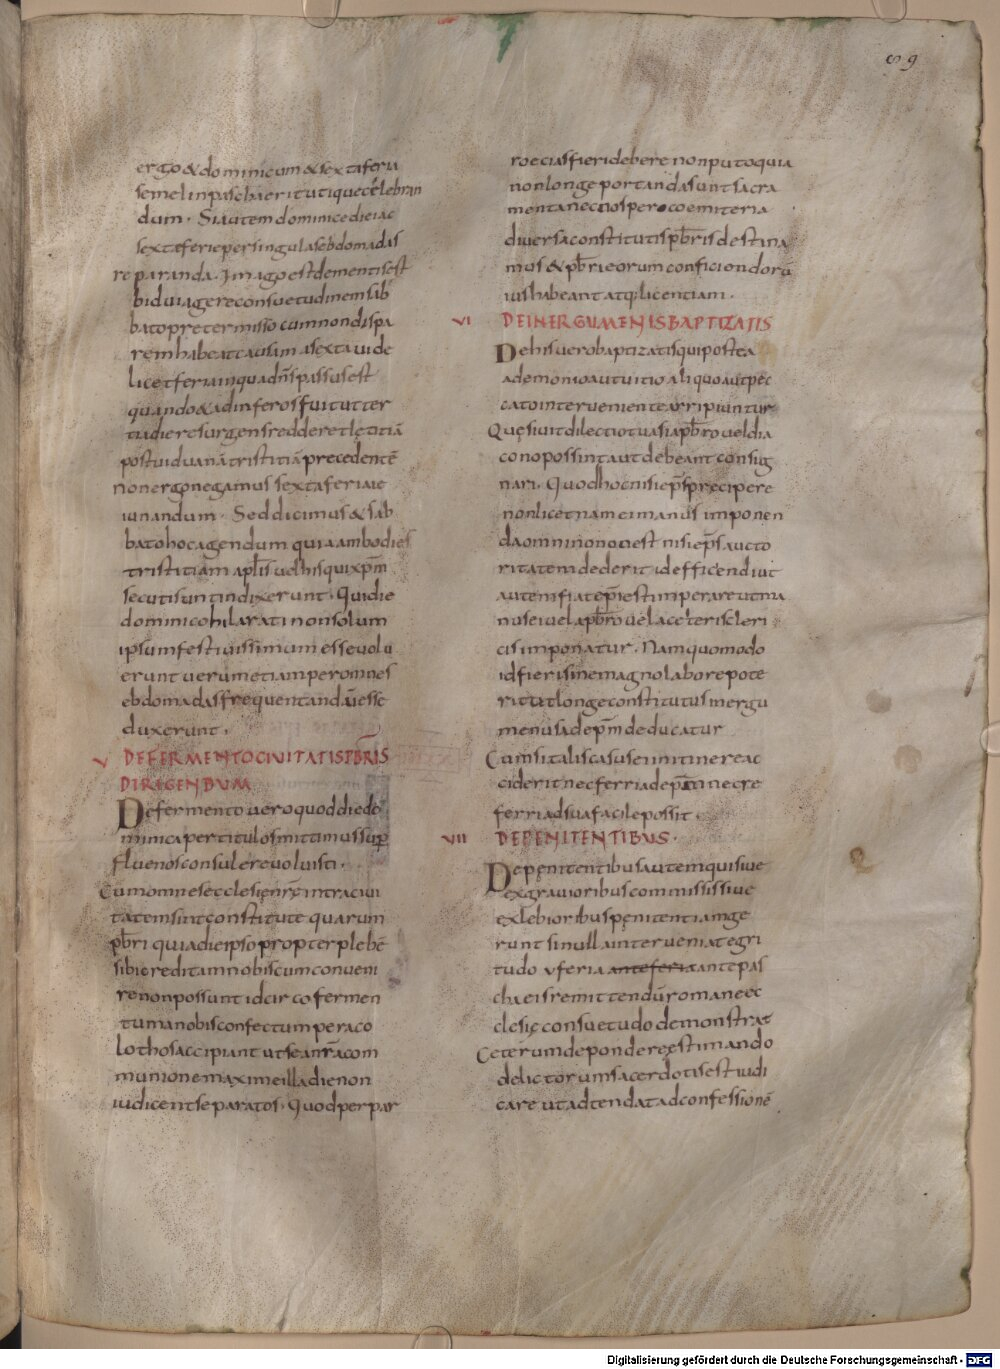 89
ergo & dominicum & sextaferia
semel in pascha erit utique celebran
dum · Si autem dominice diei ac
sextȩ ferie per singulas ebdomadas
reparanda · Imago est dementis est
bidui agere consuetudinem sab
bato pretermisso cum non dispa
rem habeat causam a sexta vide
licet feria in qua dn̄s passus est
quando & ad inferos fuit ut ter
tia die resurgens redderet lȩtitiā
post viduanā tristitiā precedentē
non ergo negamus sextaferia ie
iunandum · Sed dicimus & sab
bato hoc agendum quia ambo dies
tristitiam apl̄is vel his qui xp̄m
secuti sunt indixerunt · Qui die
dominico hilarati non solum
ipsum festivissimum esse volu
erunt verum etiam per omnes
ebdomadas frequentandū esse
duxerunt ·
V DE FERMENTO CIVITATIS P̄BRIS
DIRIGENDUM
De fermento vero quod die do
minica per titulos mittimus sup̄
flue nos consulere voluisti ·
Cum omnes ecclesiȩ nr̄ȩ intra civi
tatem sint constitutȩ quarum
p̄bri quia die ipso propter plebē
sibi creditam nobiscum conveni
re non possunt idcirco fermen
tum a nobis confectum per aco
lothos accipiant ut se a nr̄a com
munione maxime illa die non
iudicent separatos · Quod per par
roecias fieri debere non puto quia
non longe portanda sunt sacra
menta nec nos per coemiteria
diversa constitutis p̄bris destina
mus & p̄bri eorum conficiendorū
ius habeant atq; licentiam ·
VI DE INERGUMENIS BAPTIZATIS
De his vero baptizatis qui postea
a demonio aut vitio aliquo aut pec
cato interveniente arripiuntur
Quȩsivit dilectio tua si a p̄bro vel dia
cono possint aut debeant consig
nari · Quod hoc nisi ep̄s precipere
non licet nam ei manus imponen
da omnino non est nisi ep̄s aucto
ritatem dederit id efficiendi ut
autem fiat ep̄i est imperare ut ma
nus ei vel a p̄bro vel a ceteris cleri
cis imponatur · Nam quomodo
id fieri sine magno labore pote
rit ut longe constitutus inergu
menus ad ep̄m deducatur
Cum si talis casus ei in itinere ac
ciderit nec ferri ad ep̄m nec re
ferri ad sua facile possit ·
VII DE PENITENTIBUS ·
De penitentibus autem qui sive
ex gravioribus commissis sive
ex levioribus pȩnitentiam ge
runt si nulla interveniat egri
tudo v feria anteferia ante pas
cha eis remittendū romane ec
clesiȩ consuetudo demonstrat
Ceterum de pondere ȩstimando
delictorum sacerdotis est iudi
care ut adtendat ad confessionē
Digitalisierung gefördert durch die Deutsche Forschungsgemeinschaft - DFG